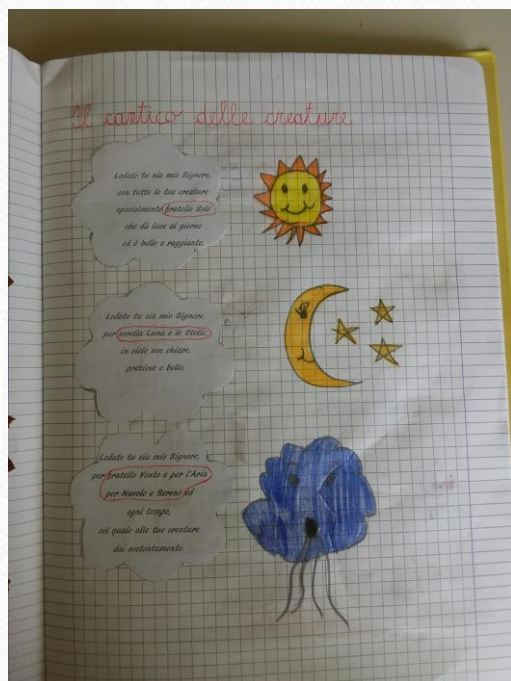 Il cantico delle creature
Lodato tu sia mio Signore,
con tutte le tue creature
specialmente fratello Sole
che dà luce al giorno
ed è bello e raggiante.
Lodato tu sia mio Signore,
per sorella Luna e le Stelle,
in cielo son chiare,
preziose e belle.
Lodato tu sia mio Signore,
per fratello Vento e per l'Aria
per Nuvolo e Sereno ed
ogni tempo,
col quale alle tue creature
dai sostentamento.